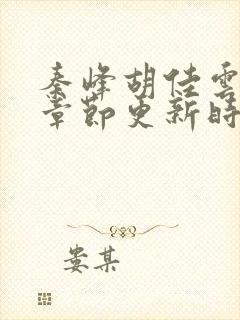 秦峰胡佳雲
章節更新時
娄某